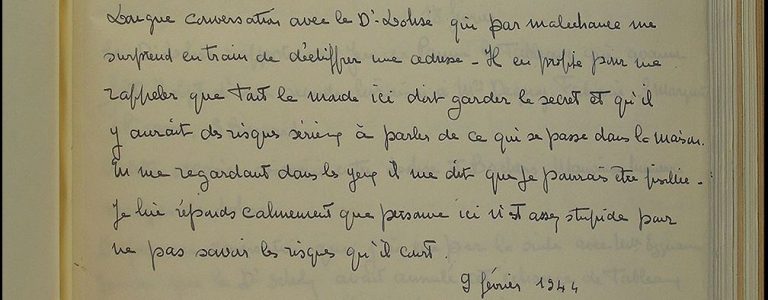 Longue conversation avec le Dr Lohse qui par malechance me
surprend en train de déchiffrer une adresse - Il en profite pour me
rappeler que tout le monde ici doit garder le secret et qu'il
y aurait des risques sérieux à parler de ce qui se passe dans la maison.
En me regardant dans les yeux il me dit que je pourrais être fusillée -
Je lui réponds calmement que personne ici n'est assez stupide pour
ne pas savoir les risques qu'il court.
9 février 1944